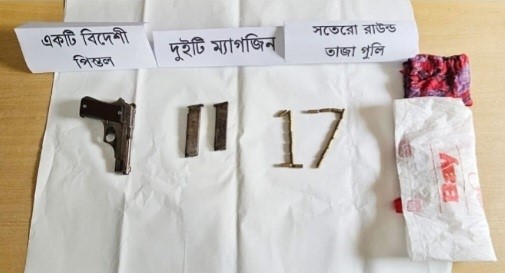 একটি বিদেশী
পিস্তল
দুইটি ম্যাগজিন
সতেরো রাউন্ড
তাজা গুলি
17
Bay